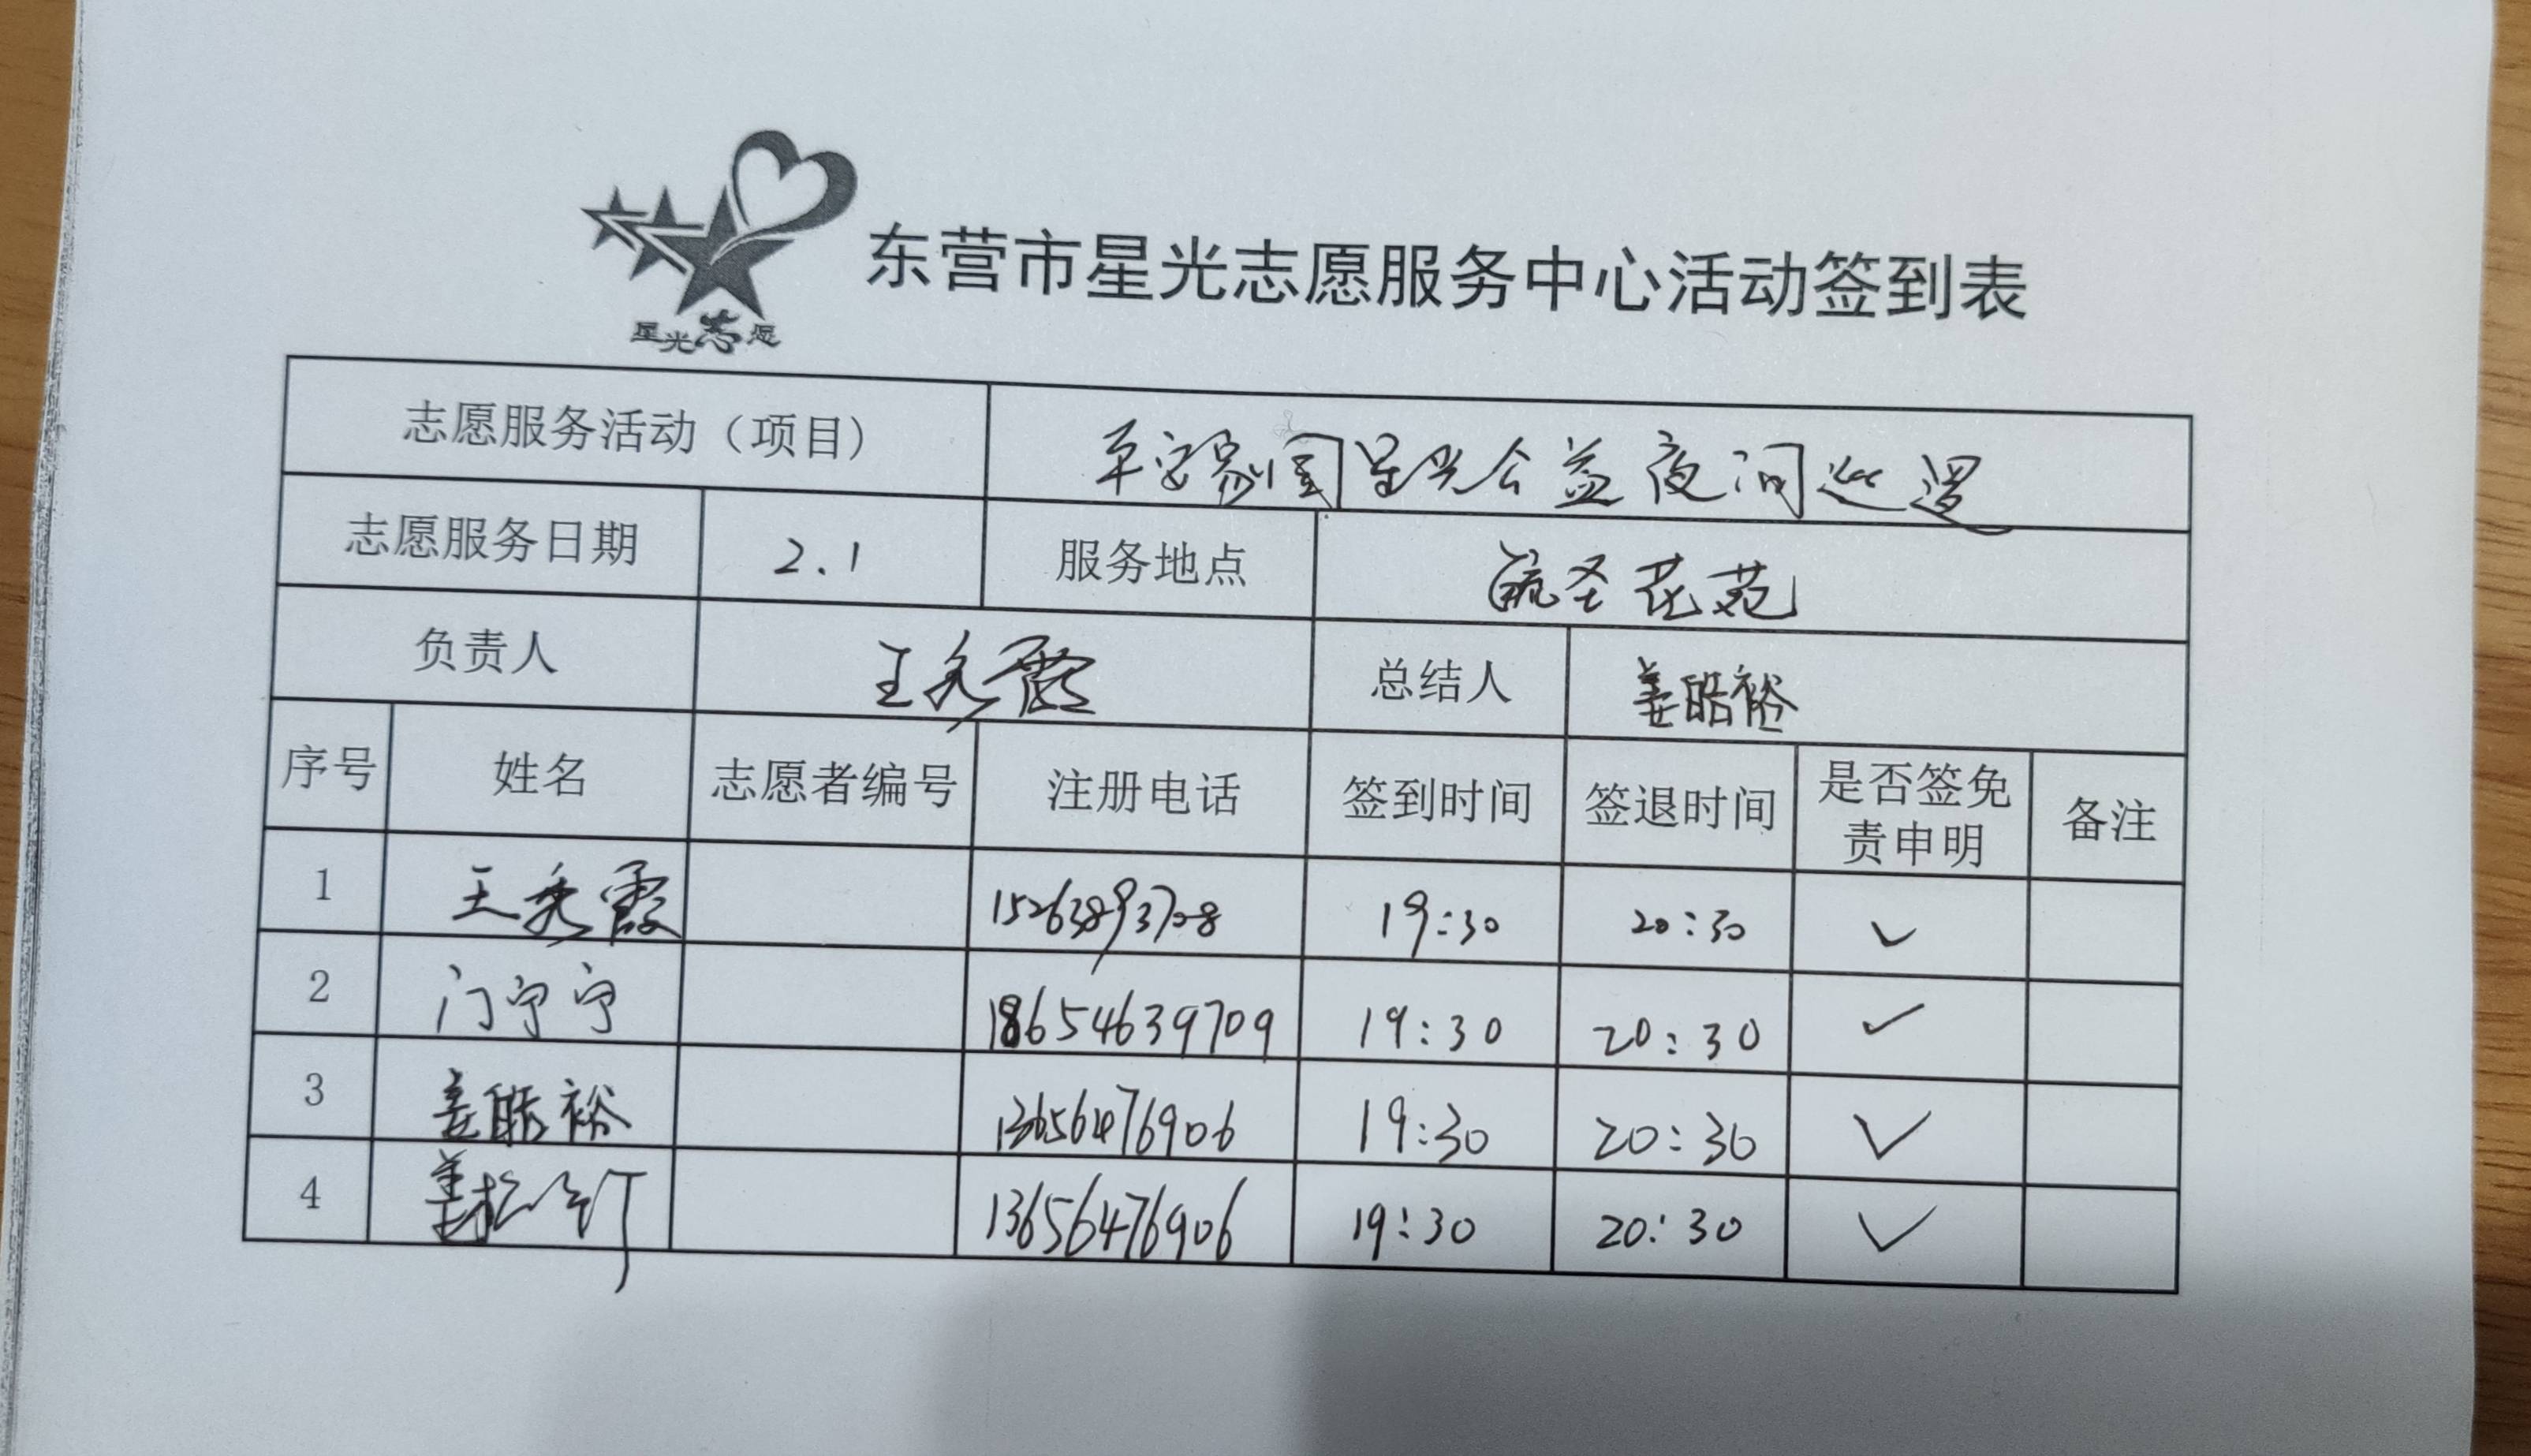 星光志愿
东营市星光志愿服务中心活动签到表
志愿服务活动（项目） 平安家园星光公益夜间巡逻
志愿服务日期 2.1 服务地点 毓圣花苑
负责人 王秀霞 总结人 姜皓裕
序号 姓名 志愿者编号 注册电话 签到时间 签退时间 是否签免责申明 备注
1 王秀霞 15263893728 19:30 20:30 ✓
2 门宁宁 18654639709 19:30 20:30 ✓
3 姜皓裕 13656476906 19:30 20:30 ✓
4 姜松 13656476906 19:30 20:30 ✓